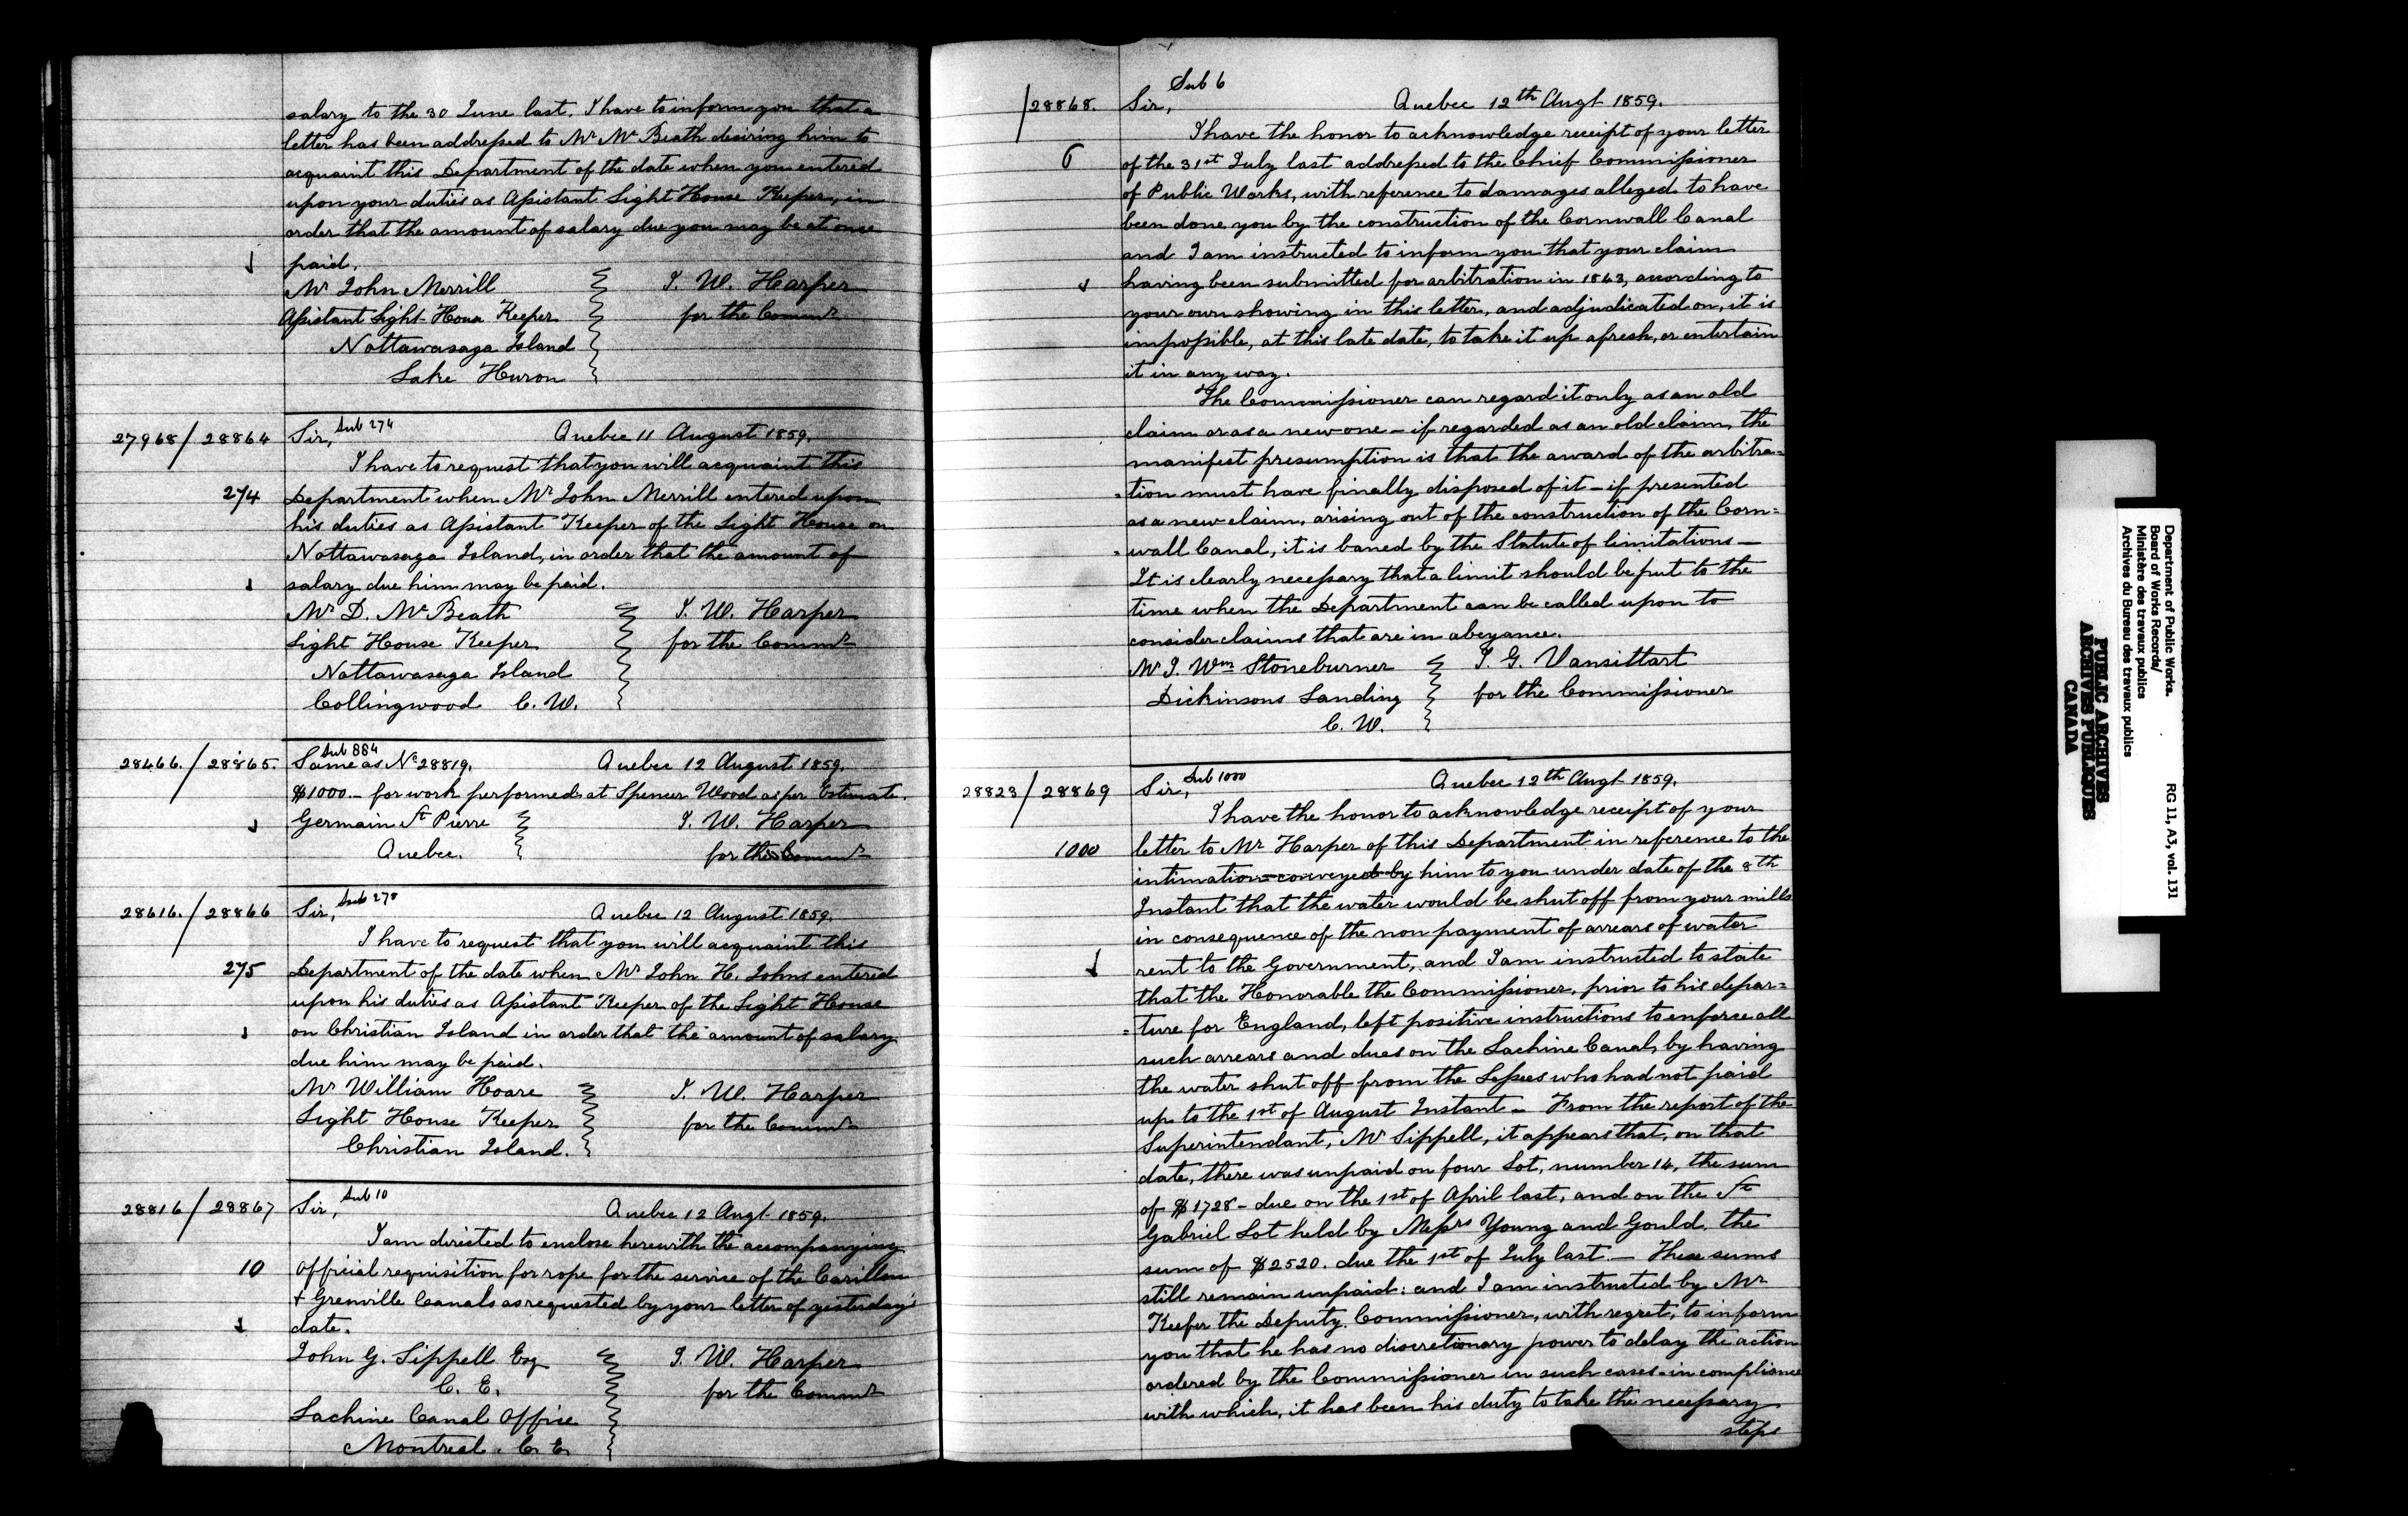 salary to the 30 June last. I have to inform you that a
letter has been addressed to Mr McBeath desiring him to
acquaint this Department of the date when you entered
upon your duties as Assistant Light House Keeper, in
order that the amount of salary due you may be at once
paid.
Mr John Merrill
J. W. Harper
Assistant Light House Keeper
for the Commrs
Nottawasaga Island
Lake Huron
27968/28864 Sir, Sub 274 Quebec 11 August 1859.
I have to request that you will acquaint this
274 Department when Mr John Merrill entered upon
his duties as Assistant Keeper of the Light House on
Nottawasaga Island, in order that the amount of
salary due him may be paid.
Mr D. McBeath
J. W. Harper
Light House Keeper
for the Commr
Nottawasaga Island
Collingwood C. W.
28466./28865. Sub 884
Same as No 28819. Quebec 12 August 1859.
$1000.- for work performed at Spencer Wood as per Estimate.
Germain St Pierre
J. W. Harper
Quebec.
for the Commr
28616./28866 Sir, Sub 275 Quebec 12 August 1859.
I have to request that you will acquaint this
275 Department of the date when Mr John H. Johns entered
upon his duties as Assistant Keeper of the Light House
on Christian Island in order that the amount of salary
due him may be paid.
Mr William Hoare
J. W. Harper
Light House Keeper
for the Commr
Christian Island.
28816/28867 Sir, Sub 10 Quebec 12 Augt 1859.
I am directed to enclose herewith the accompanying
10 official requisition for rope for the service of the Carillon
& Grenville Canals as requested by your letter of yesterday's
date.
John G. Sippell Esq
J. W. Harper
C. E.
for the Commr
Lachine Canal Office
Montreal. C. E.
Sub 6
/28868. Sir, Quebec 12th Augt 1859.
I have the honor to acknowledge receipt of your letter
6 of the 31st July last addressed to the Chief Commissioner
of Public Works, with reference to damages alleged to have
been done you by the construction of the Cornwall Canal
and I am instructed to inform you that your claim
having been submitted for arbitration in 1843, according to
your own showing in this letter, and adjudicated on, it is
impossible, at this late date, to take it up afresh, or entertain
it in any way.
The Commissioner can regard it only as an old
claim or as a new one - if regarded as an old claim, the
manifest presumption is that the award of the arbitra=
=tion must have finally disposed of it - if presented
as a new claim, arising out of the construction of the Corn=
=wall Canal, it is barred by the Statute of limitations -
It is clearly necessary that a limit should be put to the
time when the Department can be called upon to
consider claims that are in abeyance.
Mr J. Wm Stoneburner
J. G. Vansittart
Dickinsons Landing
for the Commissioner
C. W.
28823/28869 Sir, Sub 1000 Quebec 12th Augt 1859.
I have the honor to acknowledge receipt of your
1000 letter to Mr Harper of this Department in reference to the
intimation conveyed by him to you under date of the 8th
Instant that the water would be shut off from your mills
in consequence of the non payment of arrears of water
rent to the Government, and I am instructed to state
that the Honorable the Commissioner, prior to his depar=
=ture for England, left positive instructions to enforce all
such arrears and dues on the Lachine Canal, by having
the water shut off from the Lessees who had not paid
up to the 1st of August Instant - From the report of the
Superintendant, Mr Sippell, it appears that, on that
date, there was unpaid on four Lot, number 14, the sum
of $1728 - due on the 1st of April last, and on the St
Gabriel Lot held by Messrs Young and Gould, the
sum of $2520. due the 1st of July last. - These sums
still remain unpaid: and I am instructed by Mr
Keefer the Deputy Commissioner, with regret, to inform
you that he has no discretionary power to delay the action
ordered by the Commissioner in such cases - in compliance
with which, it has been his duty to take the necessary
steps
Department of Public Works. RG 11, A3, vol. 131
Board of Works Records/
Ministère des travaux publics
Archives du Bureau des travaux publics
PUBLIC ARCHIVES
ARCHIVES PUBLIQUES
CANADA